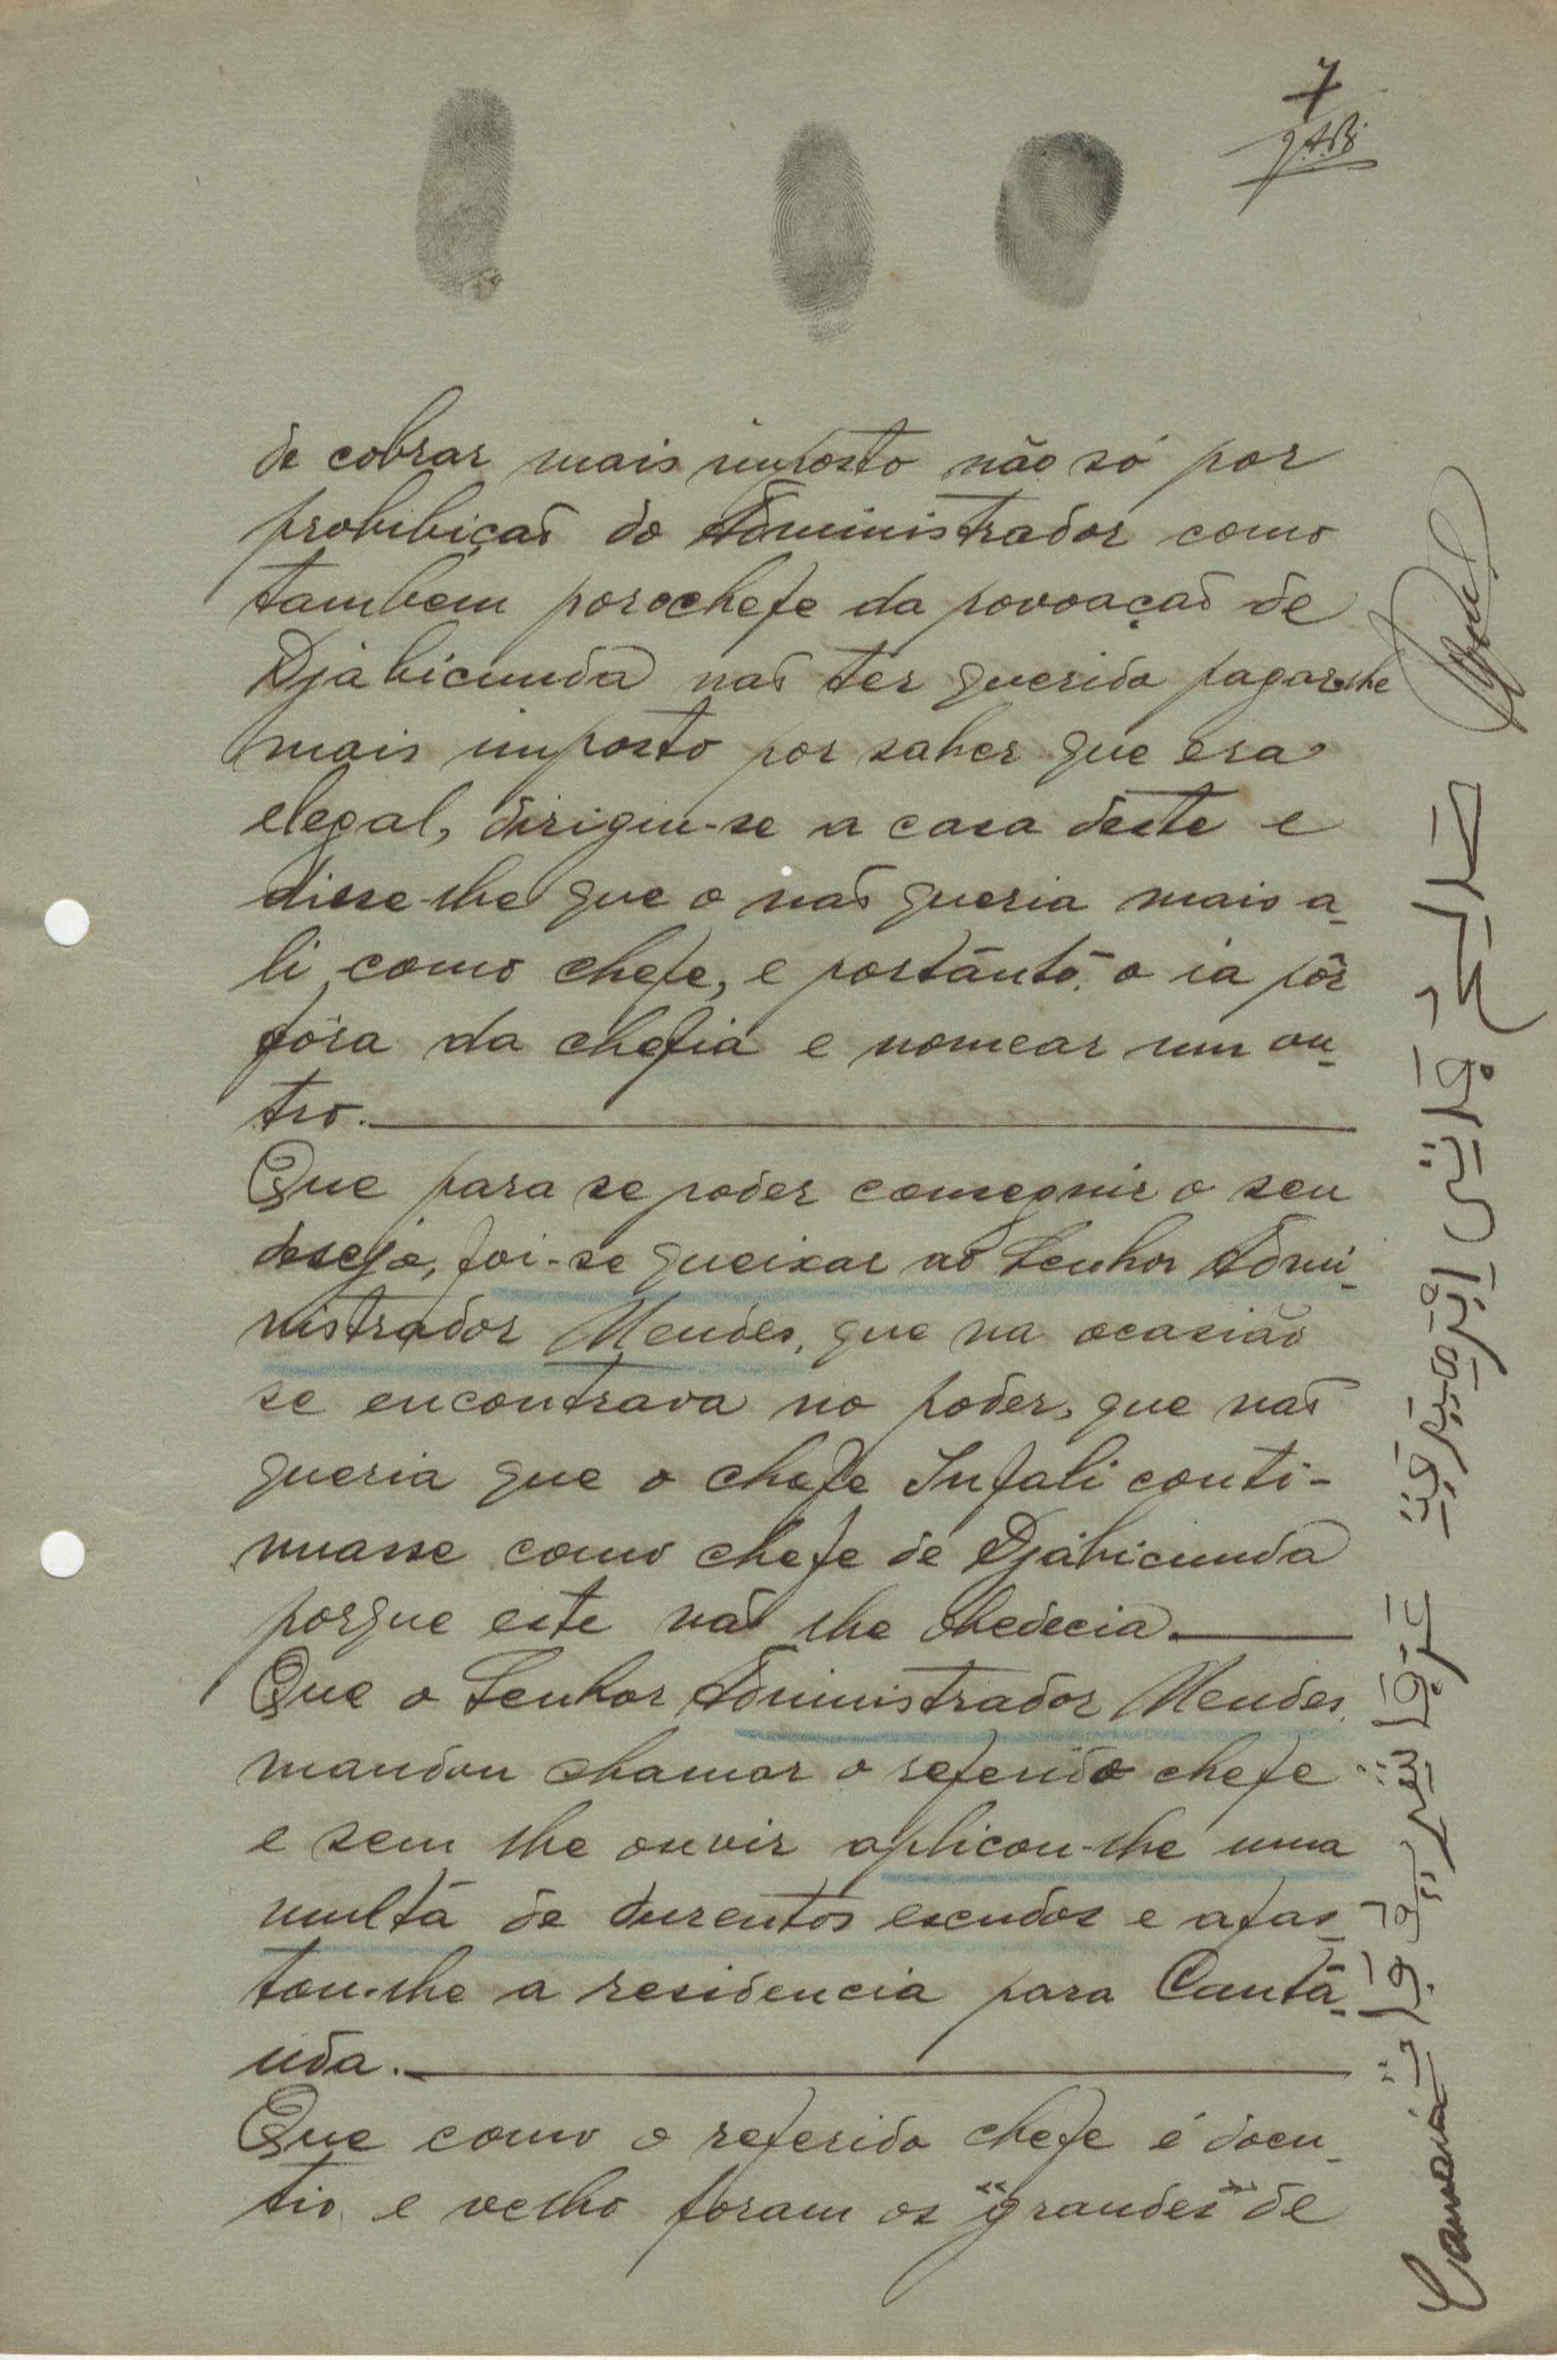 7
de cobrar mais imposto não só por
prohibiçaõ do Administrador como
tambem porochefe da povoaçaõ de
Djábicunda naõ ter querido pagar-lhe
mais imposto por saber que era
elegal, dirigiu-se a casa deste e
disse-lhe que o naõ queria mais a-
li como chefe, e portanto o ia pôr
fóra da chefia e nomear um ou-
tro.
Que para se poder conseguir o seu
desejo, foi-se queixar ao Senhor Admi-
nistrador Mendes, que na ocasião
se encontrava no poder, que naõ
queria que o chefe Infali conti-
nuasse como chefe de Djábicunda
porque este naõ lhe obedecia.
Que o Senhor Administrador Mendes,
mandou chamar o referido chefe
e sem lhe ouvir aplicou-lhe uma
multa de duzentos escudos e afas-
tou-lhe a residencia para Cantá-
uda.
Que como o referido chefe é doen-
tio e velho foram os "grandes" de